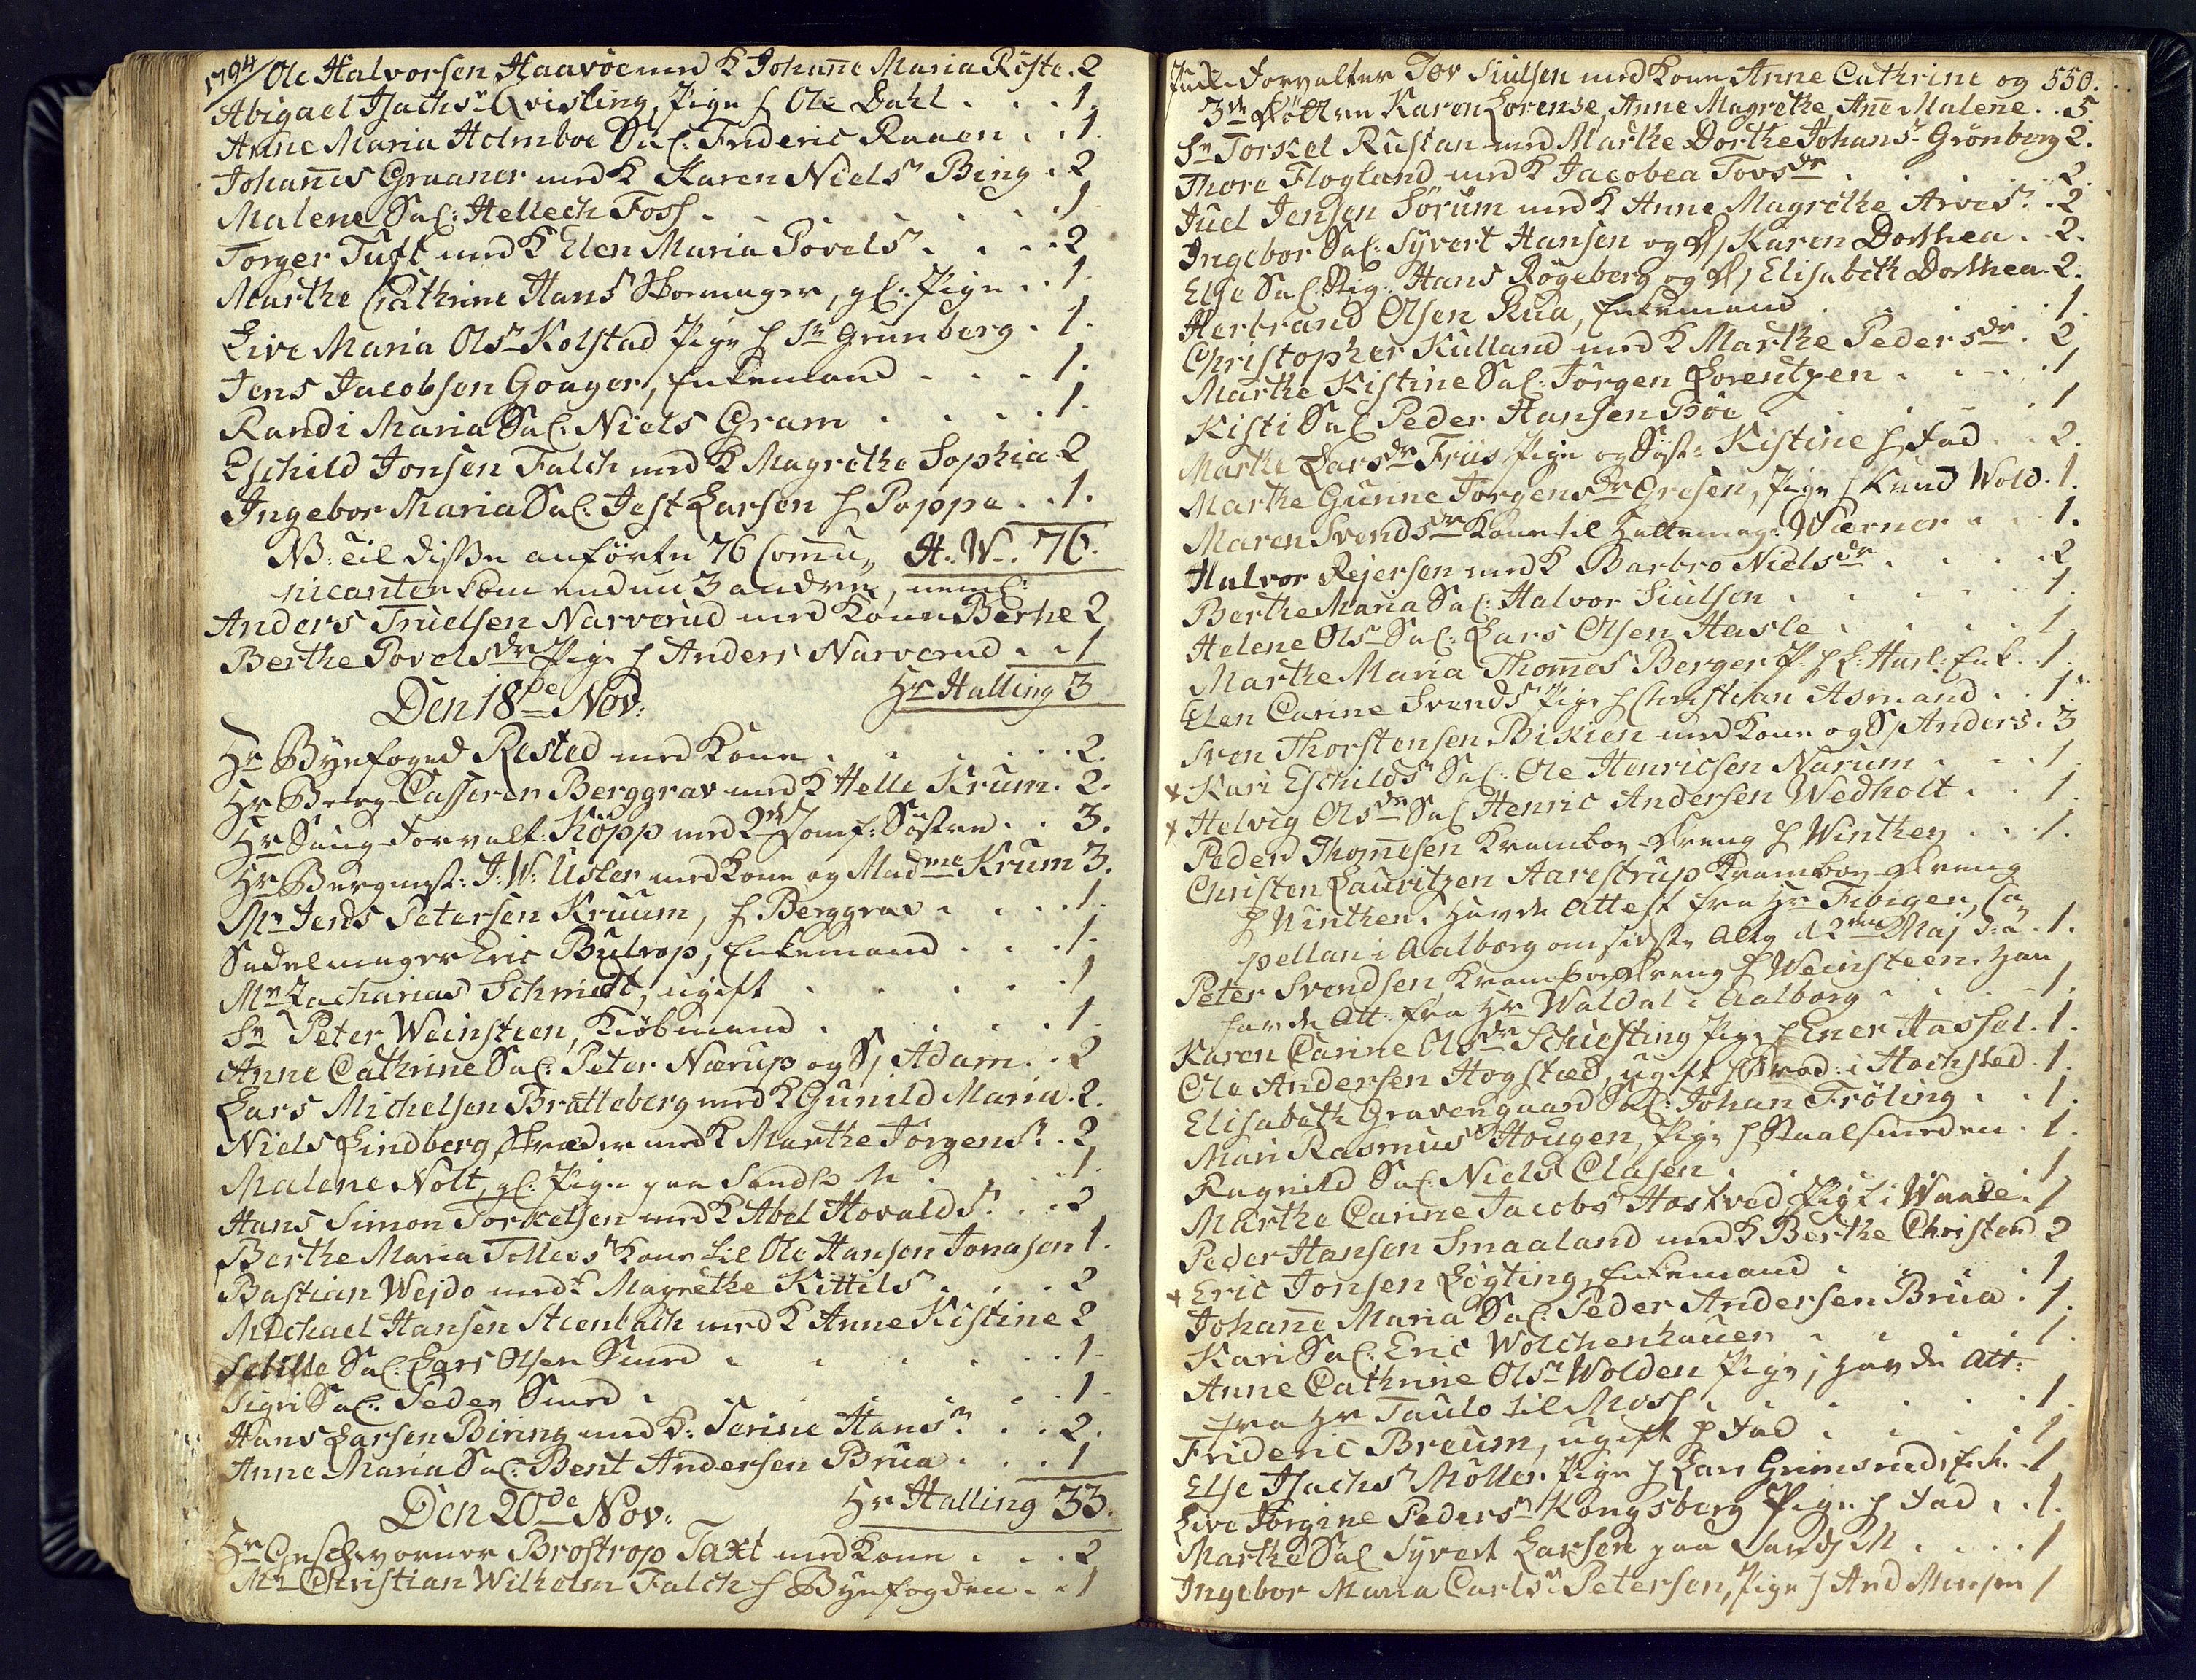 1794/ Ole Halvorsen Haavöe med K Johañe Maria Röste . 2
Abigael Isachsr Qvisling, Pige h Ole Dahl . . . 1.
Anne Maria Holmboe Sal: Frideric Raaen . . 1
Johañes Graaner med K Karen Nielsr Bing . 2
Malene Sal: Hellech Foss . . . . . 1
Torger Tuft med K Elen Maria Povelsr . . . 2
Marthe Cathrine Hansr Skomager, gl: Pige . . 1.
Live Maria Olsr Kolstad Pige h Sr Grünberg . 1.
Jens Jacobsen Goager, Enkemand . . . . 1.
Randi Maria Sal: Niels Gram . . . . 1.
Eschild Jonsen Falch med K Magrethe Sophia 2
Ingebor Maria Sal: Jest Larsen h Poppe . . 1.
NB: til disse anförte 76 Comu„ H. W.. 76.
nicanter kom endnu 3 andre, neml:
Anders Truelsen Narverud med Kone Berthe 2
Berthe Povelsdr Pige h Anders Narverud . . 1
Den 18de Nov: Hr Halling 3
Hr Byefoged Rested med Kone . . . . . 2.
Hr Berg-Casserer Berggrav med K Helle Krum . 2.
Hr Saug-Forvalt: Köpp med 2de Jomf: Söstre . . 3.
Hr Bergmest: J: W: Uster med Kone og Madme Krum 3.
Mr Jends Petersen Kruum, h Berggrav . . . . 1.
Sadelmager Eric Bulrop, Enkemand . . . 1.
Mr Zacharias Schmidt, ugift . . . . 1
Sr Peter Weinsteen, Kiöbmand . . . . 1.
Anne Cathrine Sal: Peter Nærup og S/ Adam . . 2
Lars Michelsen Bratteberg med K Gunild Maria . 2.
Niels Lindberg Skræder med K Marthe Jörgensr . . 2
Malene Nolt, gl: Pige paa Sands M . . . 1.
Hans Simon Torkelsen med K Abel Hovaldsr . . . 2
Berthe Maria Tollevsr Kone til Ole Hansen Jonasen 1.
Bastian Wejdo med K Magrethe Kittilsr . . . . 2
Michael Hansen Steenbach med K Anne Kistine 2
Sebille Sal: Lars Olsen Smed . . . . . 1.
Sigri Sal: Peder Smed . . . . . . 1.
Hans Larsen Biring med K: Serine Hansr . . . 2.
Anne Maria Sal: Bent Andersen Brua . . . 1
Den 20de Nov: Hr Halling 33.
Hr Geschworner Brostrop Taxt med Kone . . . 2
Mr Christian Wilhelm Falch h Byefogden . . 1
Forvalter Tov Siulsen med Kone Anne Cathrine og 550.
3de Döttre Karen Lorense, Anne Magrethe, Añe Malene . . 5.
Sr Torkel Rustan med Marthe Dorthe Johansr Grönberg 2.
Thore Flogland med K Jacobea Tovsdr . . . . 2.
Juel Jensen Sörum med K Anne Magrethe Arvesr . 2
Ingebor Sal: Syvert Hansen og D/ Karen Dorthea . . 2.
Else Sal: Stig: Hans Rögeberg og D/ Elisabeth Dorthea . 2.
Herbrand Olsen Rua, Enkemand . . . . 1.
Christopher Kulland med K Marthe Pedersdr . 2
Marthe Kistine Sal: Jörgen Lorentzen . . . . 1
Kisti Sal: Peder Hansen Böe . . . . 1
Marthe Larsdr Friis Pige og Söst: Kistine h Fad . . 2.
Marthe Gurine Jörgensdr Gresen, Pige h Knud Wold . 1.
Maren Svendsdr Kone til Hattemag: Wærner . . 1.
Halvor Rejersen med K Barbro Nielsdr . . . . 2
Berthe Maria Sal: Halvor Siulsen . . . . 1
Helene Olsr Sal: Lars Olsen Hasle . . . . 1.
Marthe Maria Thomesr Berger P. h L: Hasl: Enk . . 1.
Elen Carine Svendsr Pige h Christian Asmand . . 1.
Sven Thorstensen Bikien med Kone og S/ Anders . 3
x Kari Eschildsr Sal: Ole Henricsen Narum . . . 1.
x Helvig Olsdr Sal: Henric Andersen Wedholt . . 1.
Peder Thomesen Krambod-Dreng h Winther . . . 1.
Christen Lauritzen Aarestrup Krambod-Dreng
h Winther. Havde Attest fra Hr Fibiger, Ca„
pellan i Aalborg om sidste Altg d 2den Maj d: a: . 1.
Peter Svendsen Krambod Dreng h Weinsteen. Han
havde Att: fra Hr Waldal i Aalborg . . . . 1.
Karen Carine Olsdr Schiesting Pige h Ener Hassel . 1.
Ole Andersen Hogstæd, ugift i Hochsted . 1.
Elisabeth Gravengaard Sal: Johan Fröling . . 1.
Mari Rasmusr Hougen, Pige h Staalsmeden . 1.
Ragnild Sal: Niels Clasen . . . . 1
Marthe Carine Jacobsr Hostved Pige i Waale . 1
Peder Hansen Smaaland med K Berthe Christend 2
x Eric Jonsen Lögting, Enkemand . . . . 1.
Johañe Maria Sal: Peder Andersen Brua . 1.
Kari Sal: Eric Wolchenhauer . . . . 1.
Anne Cathrine Olsr Wolden Pige, havde Att:
fra Hr Taulo til Moss . . . . . 1
Frideric Breum, ugift h Fad . . . . 1
Else Isachsr Möller Pige h Lars Grimsrud, Enk . . 1
Live Jörgine Pedersr Kongsberg Pige h Fad . . 1.
Marthe Sal: Syvert Larsen paa Sands M . . . . 1
Ingebor Maria Carlsr Petersen, Pige h And Monsen 1